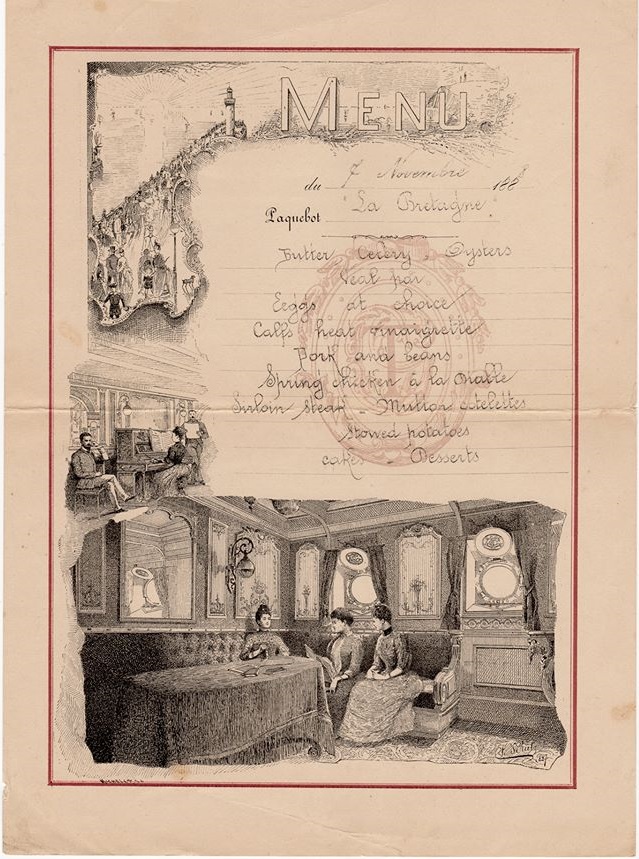 MENU
du 7 Novembre 188
Paquebot "La Bretagne"
Butter Celery - Oysters
Veal
Eeggs at choice
Calfs heat vinaigrette
Pork and beans
Spring chicken à la Diable
Sirloin steak - Mutton cotelettes
Stowed potatoes
cakes - Desserts